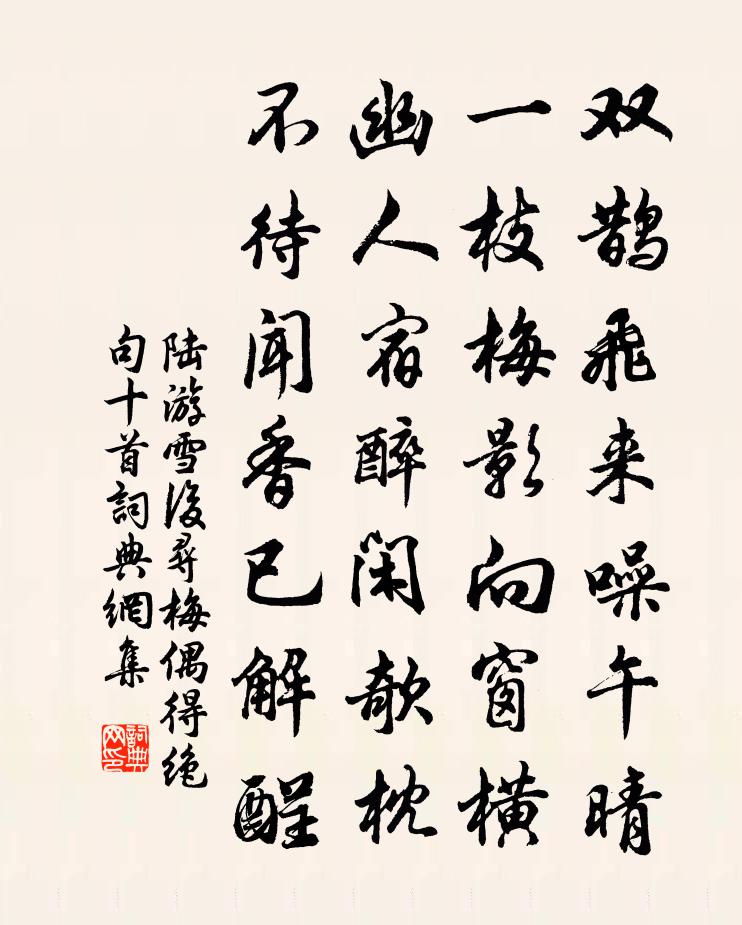 双鹊飞来噪午晴
一枝梅影向窗横
幽人宿醉闲欹枕
不待闻香已解酲
陆游雪後尋梅偶得绝
句十首詞典網集
詞典
网印